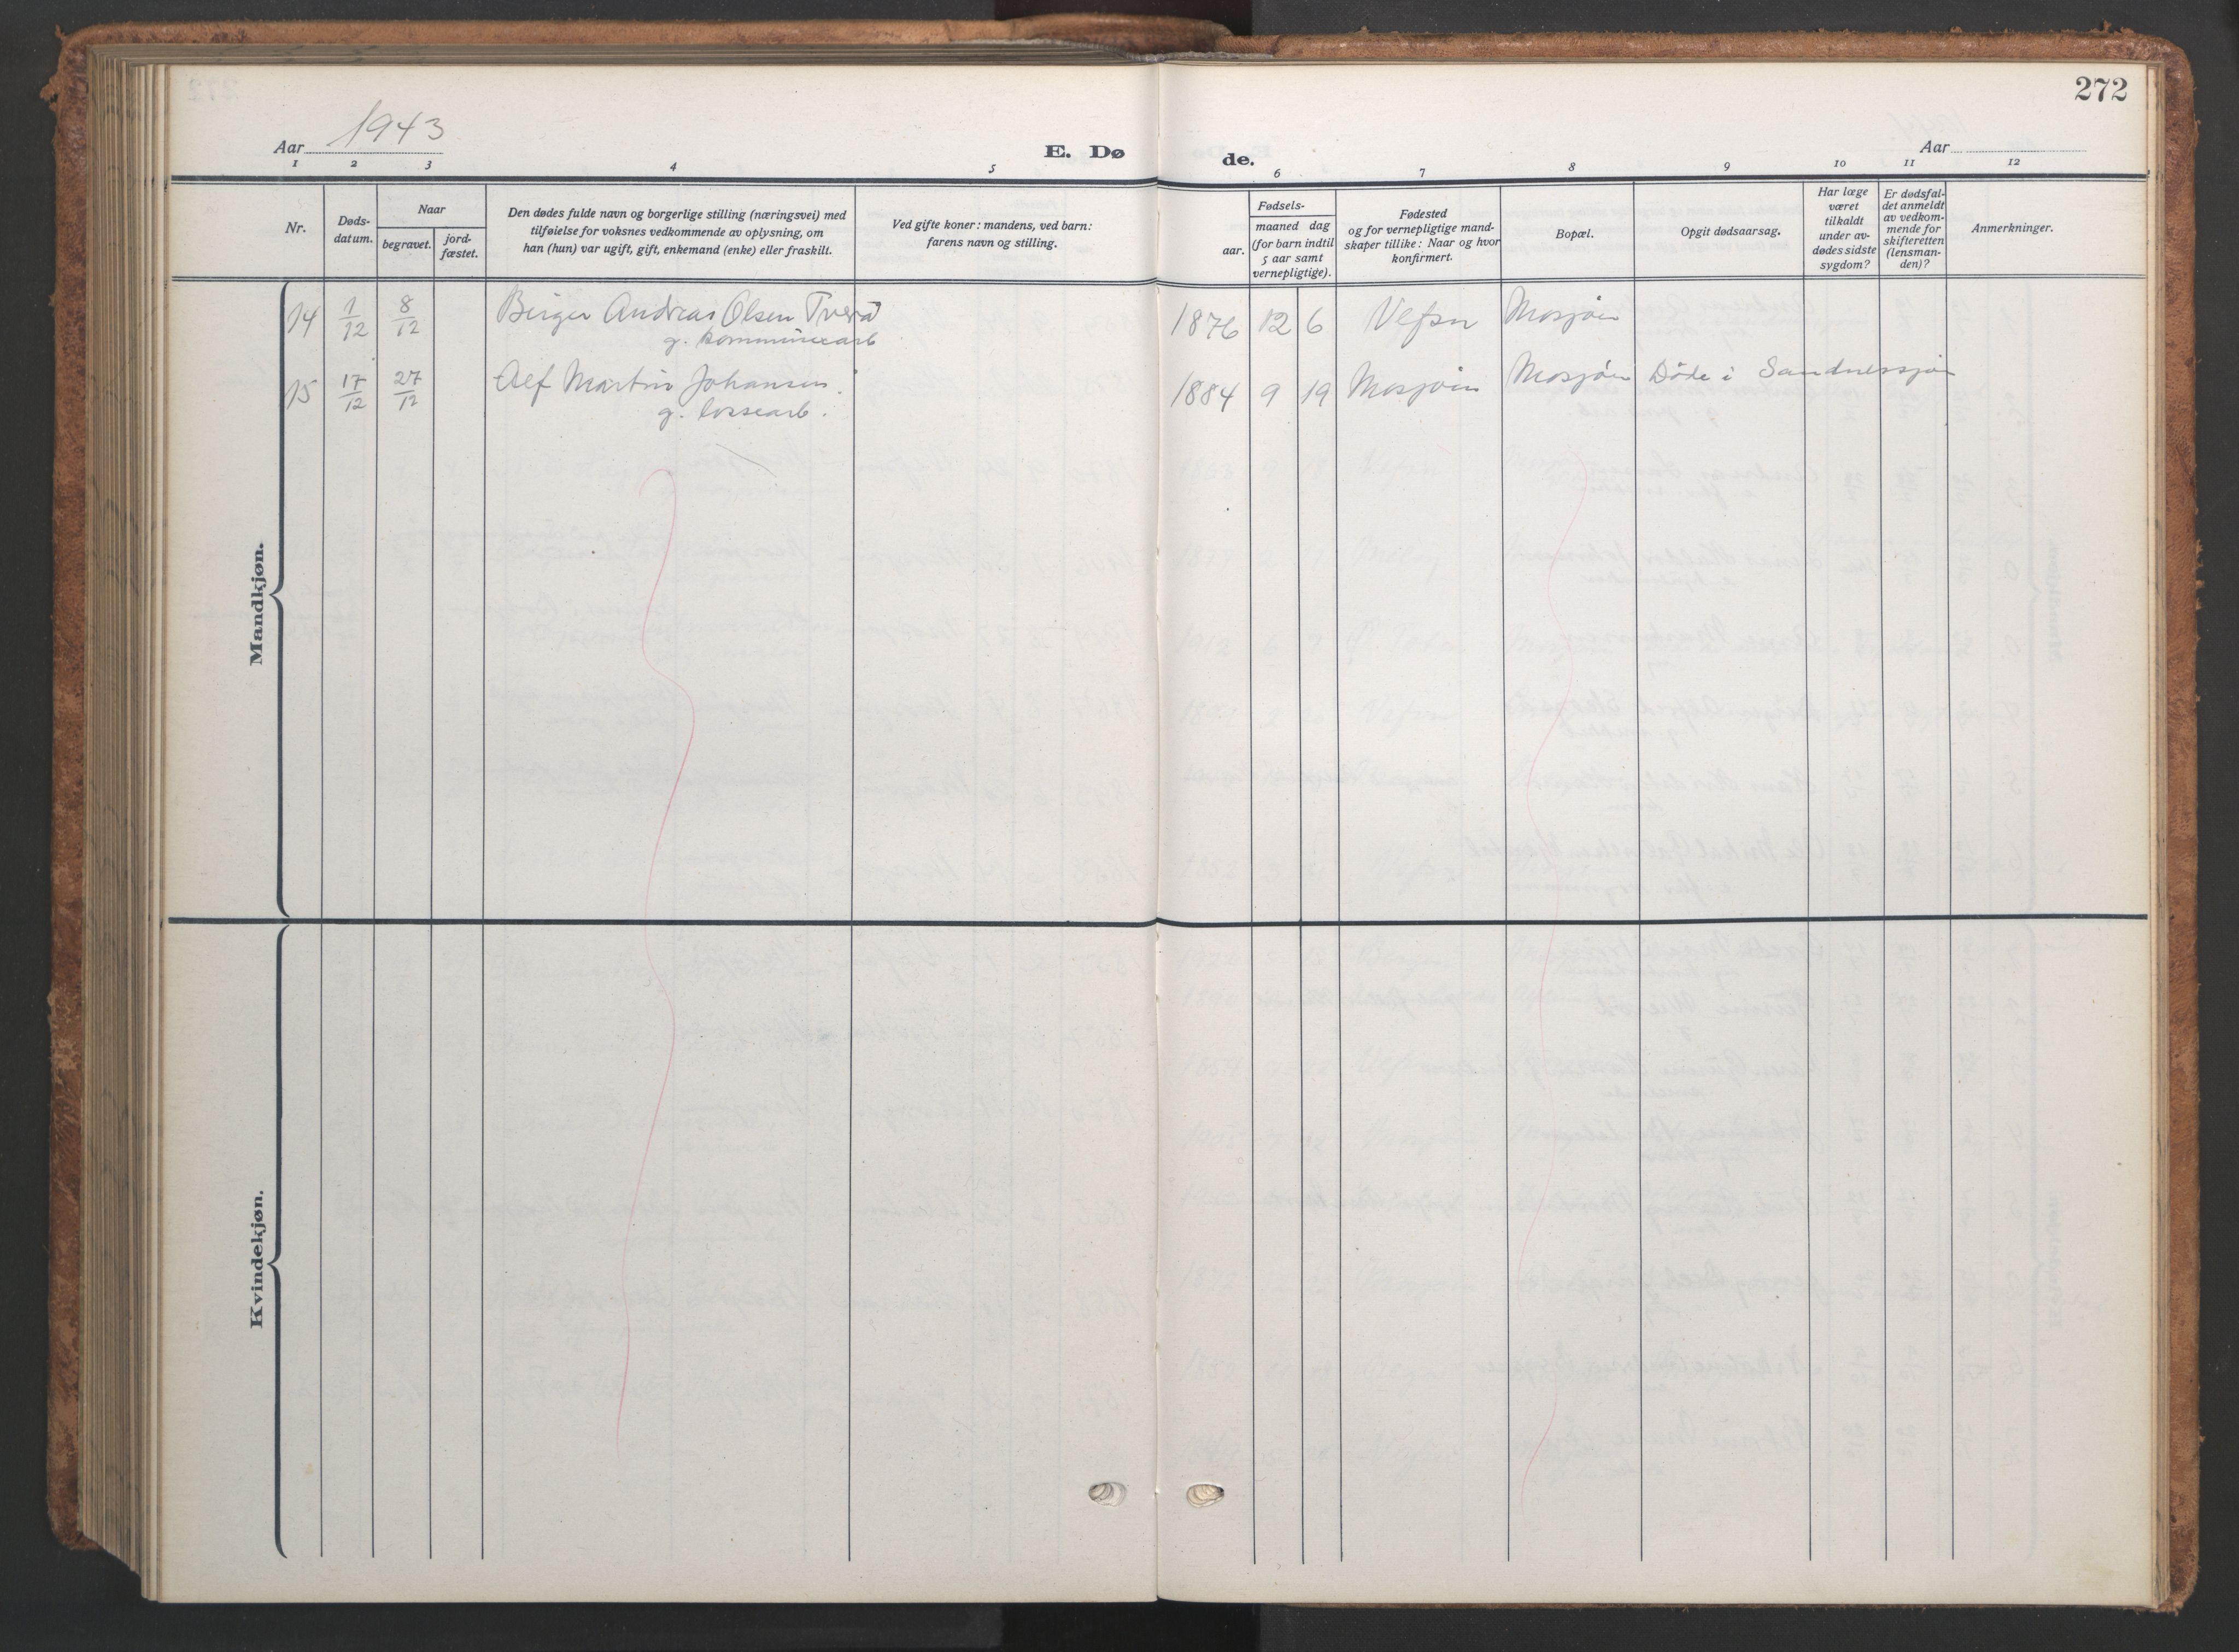 272
Aar 1943
E. Dø
de.
Aar
1 2 3 4 5 6 7 8 9 10 11 12
Nr.
Døds-
datum.
Naar
begravet.
jord-
fæstet.
Den dødes fulde navn og borgerlige stilling (næringsvei) med
tilføielse for voksnes vedkommende av oplysning, om
han (hun) var ugift, gift, enkemand (enke) eller fraskilt.
Ved gifte koner: mandens, ved barn:
farens navn og stilling.
Fødsels-
aar.
maaned dag
(for barn indtil
5 aar samt
vernepligtige).
Fødested
og for vernepligtige mand-
skaper tillike: Naar og hvor
konfirmert.
Bopæl.
Opgit dødsaarsag.
Har læge
været
tilkaldt
under av-
dødes sidste
sygdom?
Er dødsfal-
det anmeldt
av vedkom-
mende for
skifteretten
(lensman-
den)?
Anmerkninger.
Mandkjøn.
14 1/12 8/12 Birger Andreas Olsen Tverå 1876 12 6 Vefsn Mosjøen
g. kommunearb
15 17/12 27/12 Alf Martin Johansen 1884 9 19 Mosjøen Mosjøen Døde i Sandnessjøen
g. lossearb.
Kvindekjøn.